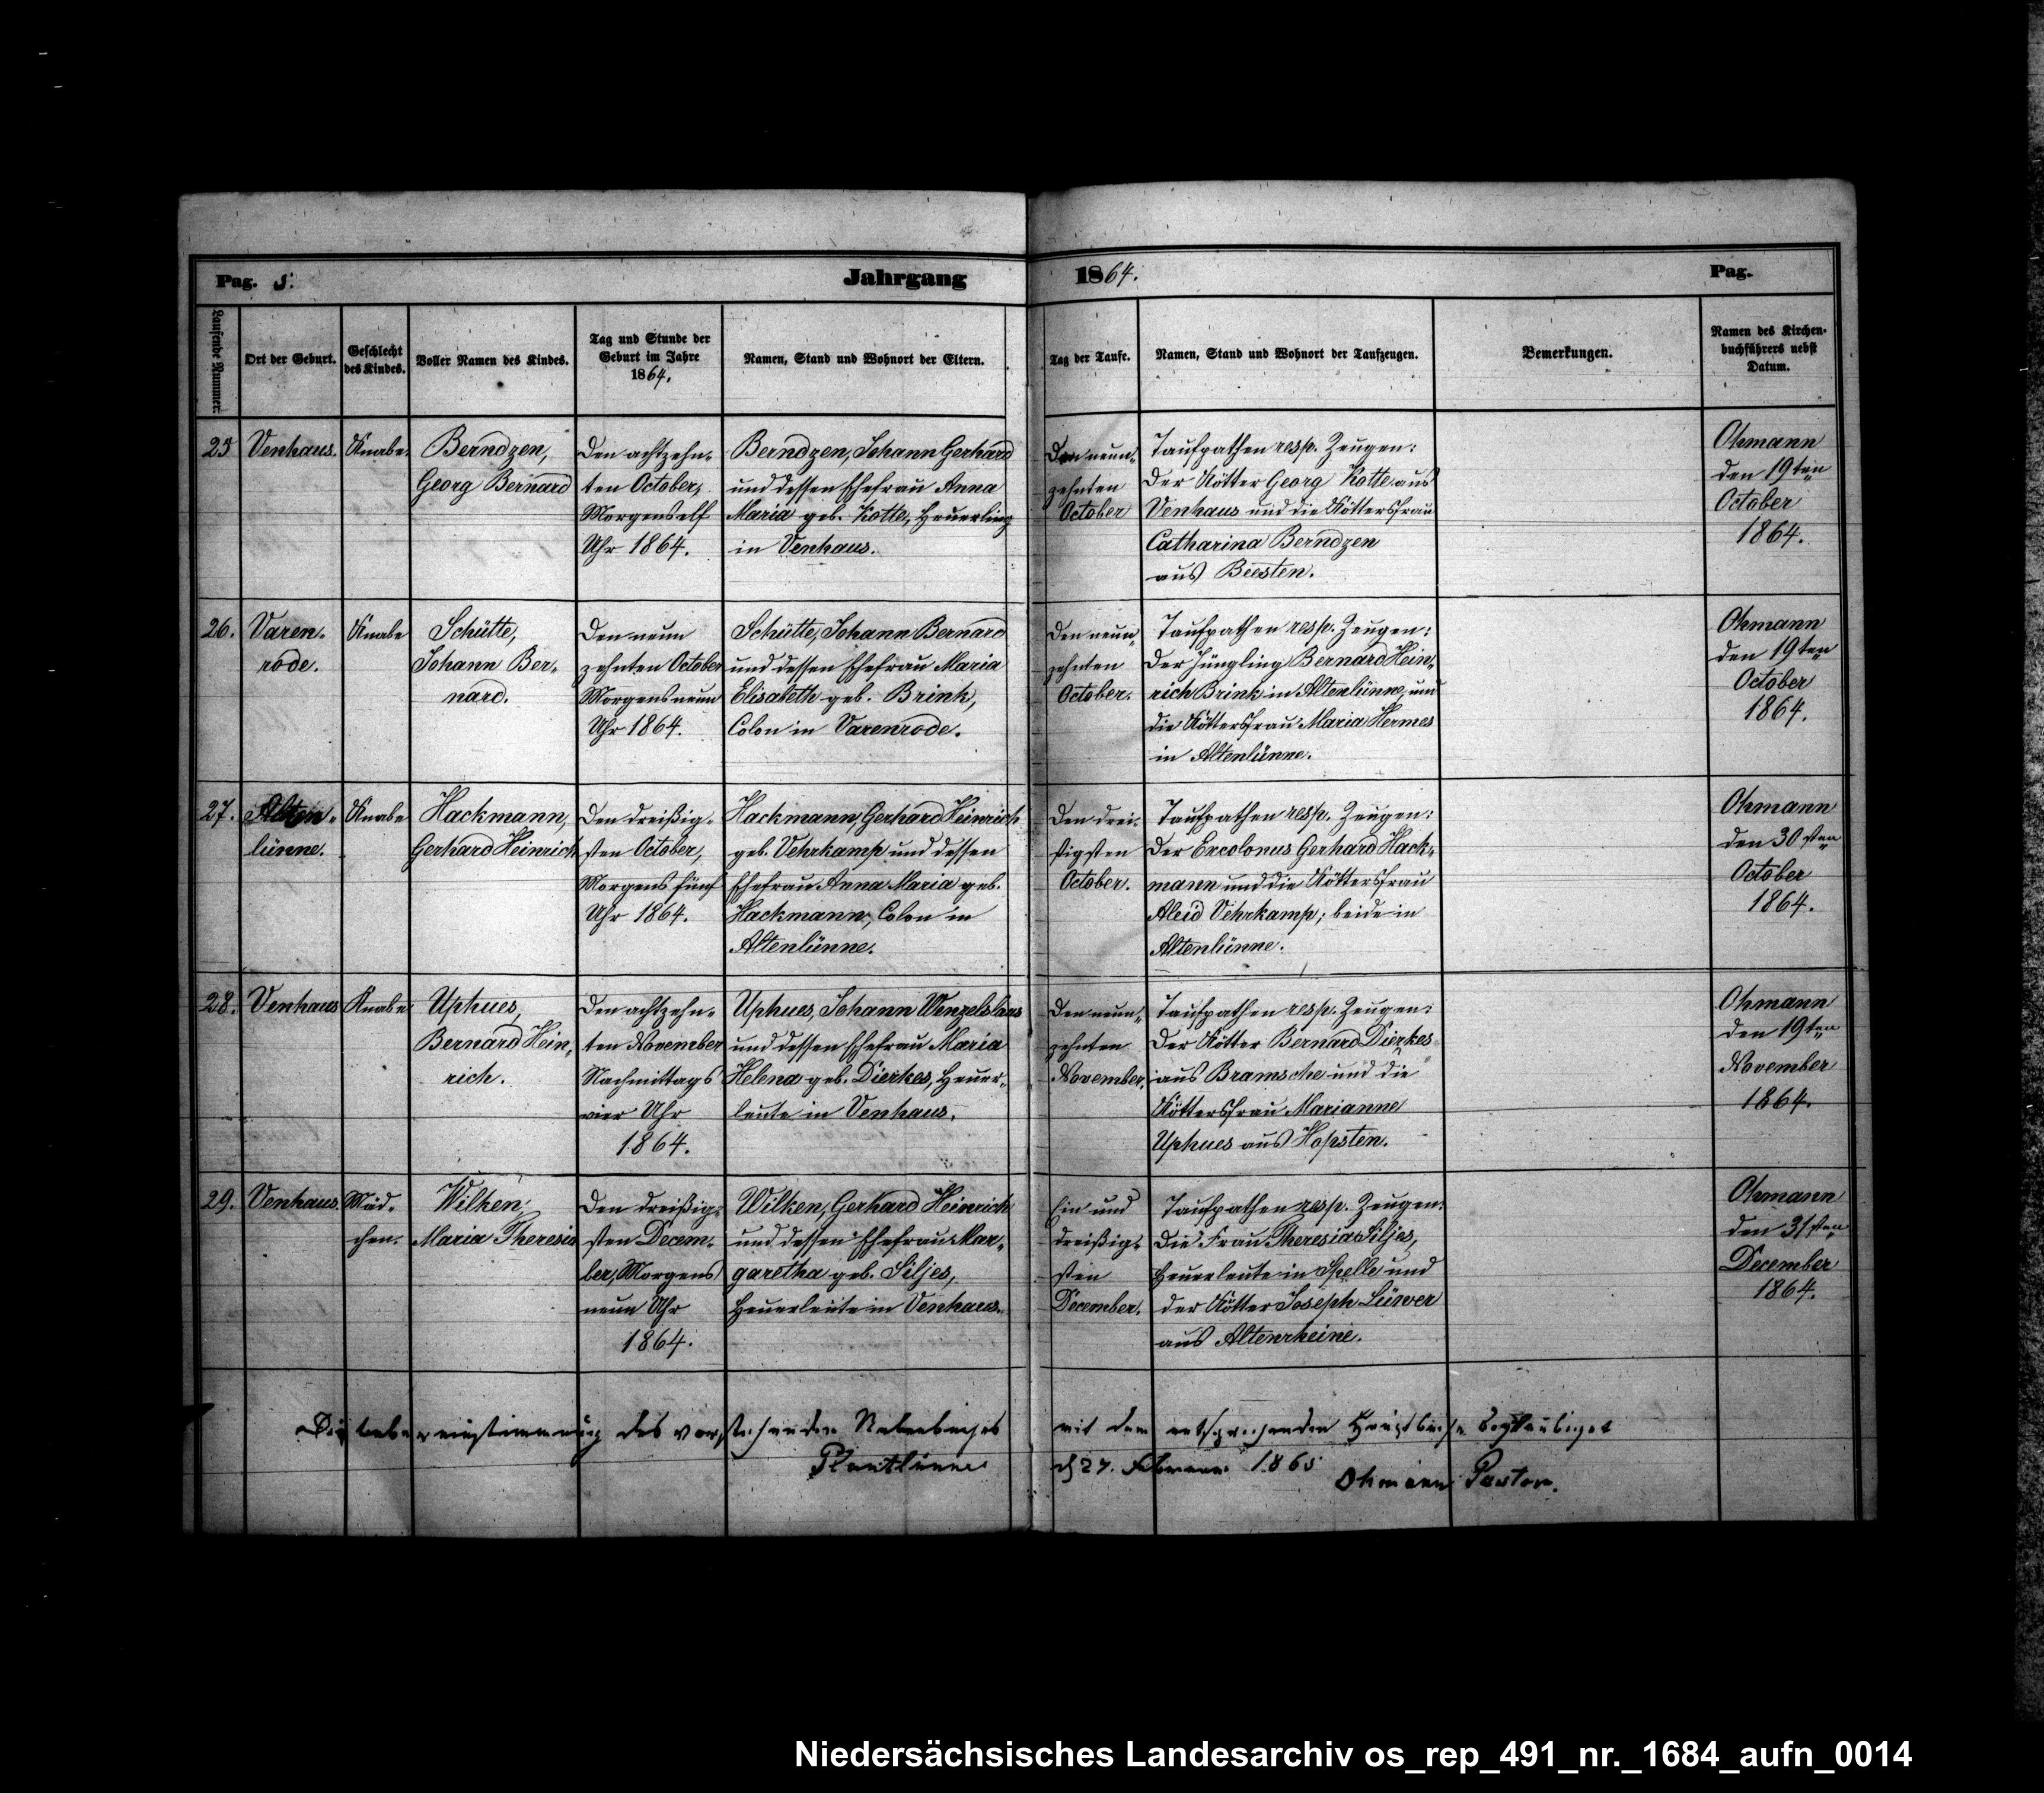 Pag. 5.
Jahrgang
1864.
Pag.
Laufende Nummer.
Ort der Geburt.
Geschlecht
des Kindes.
Voller Namen des Kindes.
Tag und Stunde der
Geburt im Jahre
1864.
Namen, Stand und Wohnort der Eltern.
Tag der Taufe.
Namen, Stand und Wohnort der Taufzeugen.
Bemerkungen.
Namen des Kirchen-
buchführers nebst
Datum.
25
Venhaus.
Knabe.
Berndzen,
Georg Bernard
Den achtzehn-
ten October,
Morgens elf
Uhr 1864.
Berndzen, Johann Gerhard
und dessen Ehefrau Anna
Maria geb. Kotte, Heuerling
in Venhaus.
Den neun-
zehnten
October
Taufpathen resp. Zeugen:
Der Kötter Georg Kotte aus
Venhaus und die Köttersfrau
Catharina Berndzen
aus Beesten.
Ohmann
den 19ten
October
1864.
26.
Varen-
rode.
Knabe
Schütte,
Johann Ber-
nard.
Den neun
zehnten October
Morgens neun
Uhr 1864.
Schütte, Johann Bernard
und dessen Ehefrau Maria
Elisabeth geb. Brink,
Colon in Varenrode.
Den neun-
zehnten
October.
Taufpathen resp. Zeugen:
Der Jüngling Bernard Hein-
rich Brink in Altenlünne, und
die Köttersfrau Maria Hermes
in Altenlünne.
Ohmann
den 19ten
October
1864.
27.
Alten-
lünne.
Knabe
Hackmann,
Gerhard Heinrich
Den dreißig-
sten October,
Morgens fünf
Uhr 1864.
Hackmann, Gerhard Heinrich
geb. Vehrkamp und dessen
Ehefrau Anna Maria geb.
Hackmann, Colon in
Altenlünne.
Den drei-
ßigsten
October.
Taufpathen resp. Zeugen:
Der Excolonus Gerhard Hack-
mann und die Köttersfrau
Aleid Vehrkamp; beide in
Altenlünne.
Ohmann
den 30sten
October
1864.
28.
Venhaus
Knabe
Uphues,
Bernard Hein-
rich.
Den achtzehn-
ten November
Nachmittags
vier Uhr
1864.
Uphues, Johann Wenzelslaus
und dessen Ehefrau Maria
Helena geb. Dierkes, Heuer-
leute in Venhaus.
Den neun-
zehnten
November.
Taufpathen resp. Zeugen:
Der Kötter Bernard Dierkes
aus Bramsche und die
Köttersfrau Marianne
Uphues aus Hopsten.
Ohmann
den 19ten
November
1864.
29.
Venhaus.
Mäd-
chen.
Wilken,
Maria Theresia
Den dreißig-
sten Decem-
ber, Morgens
neun Uhr
1864.
Wilken, Gerhard Heinrich
und dessen Ehefrau Mar-
garetha geb. Siljes,
Heuerleute in Venhaus.
Ein und
dreißig-
sten
December.
Taufpathen resp. Zeugen:
Die Frau Theresia Siljes,
Heuerleute in Spelle und
der Kötter Joseph Lüwer
aus Altenrheine.
Ohmann
den 31sten
December
1864.
Die Uebereinstimmung des vorstehenden Nebenbuches mit dem entsprechenden Hauptbuche beglaubiget
Plantlünne d 27. Februar 1865
Ohmann Pastor.
Niedersächsisches Landesarchiv os_rep_491_nr._1684_aufn_0014